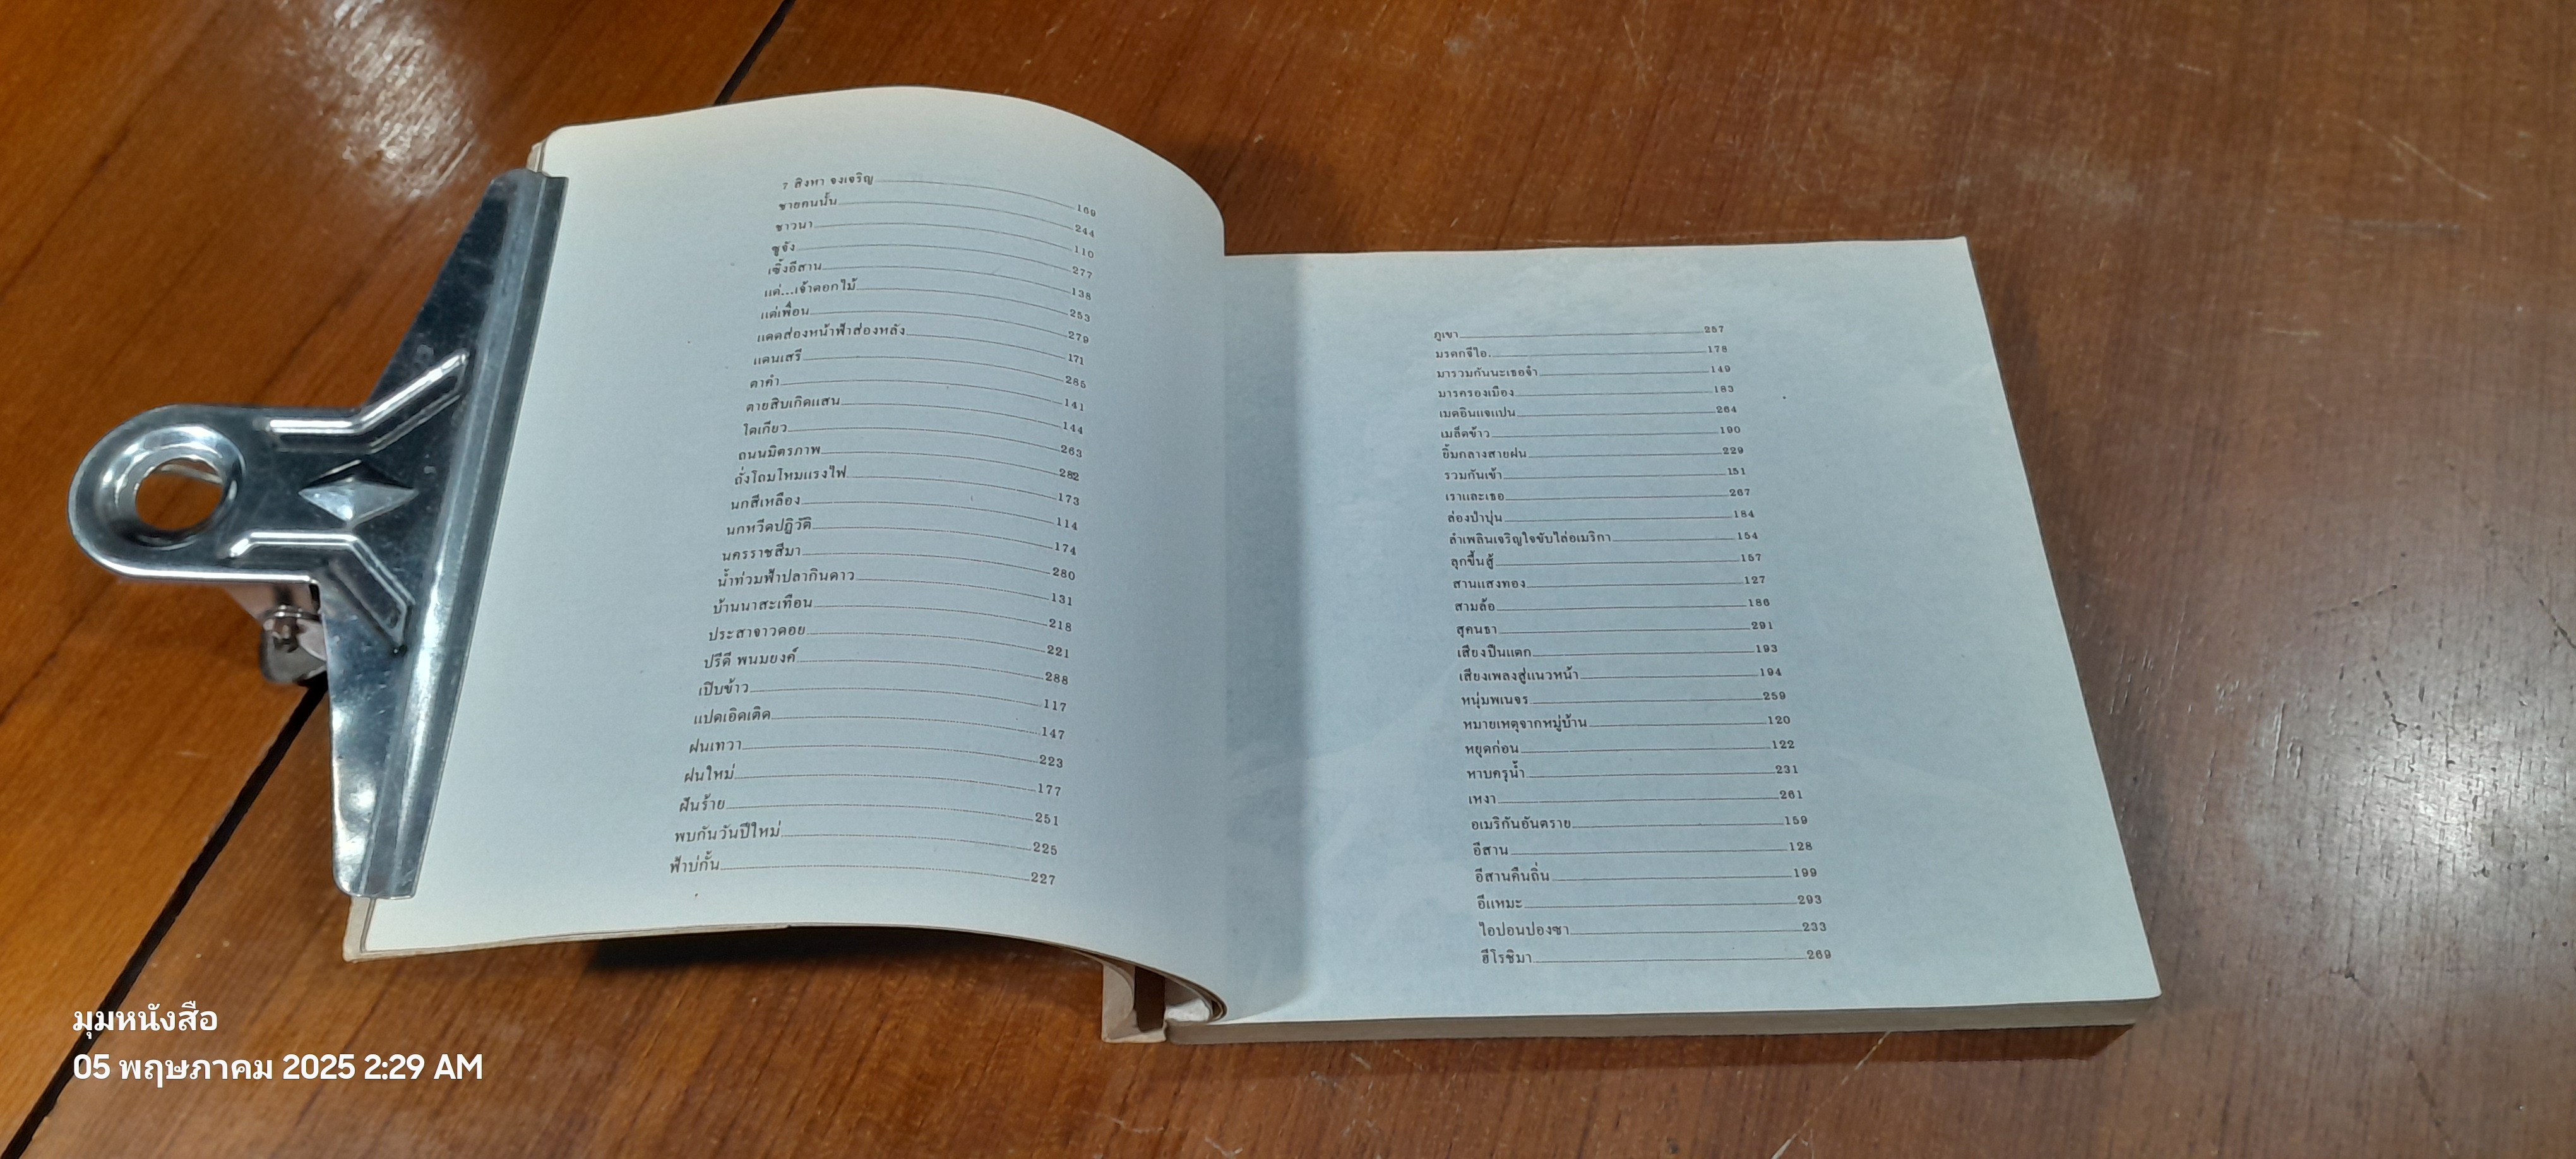 7 สิงหา จงเจริญ 169
ชายคนนั้น 244
ชาวนา 110
ซูจัง 277
เซิ้งอีสาน 138
แด่...เจ้าดอกไม้ 253
แด่เพื่อน 279
แดดส่องหน้าฟ้าส่องหลัง 171
แดนเสรี 285
ตาคำ 141
ตายสิบเกิดแสน 144
โตเกียว 263
ถนนมิตรภาพ 282
ถั่งโถมโหมแรงไฟ 173
นกสีเหลือง 114
นกหวีดปฏิวัติ 174
นครราชสีมา 280
น้ำท่วมฟ้าปลากินดาว 131
บ้านนาสะเทือน 218
ประสาจาวดอย 221
ปรีดี พนมยงค์ 288
เปิบข้าว 117
แปดเอิดเติด 147
ฝนเทวา 223
ฝนใหม่ 177
ฝันร้าย 251
พบกันวันปีใหม่ 225
ฟ้าบ่กั้น 227
ภูเขา 257
มรดกจีไอ. 178
มารวมกันนะเธอจ๋า 149
มารครองเมือง 183
เมดอินแจแปน 264
เมล็ดข้าว 190
ยิ้มกลางสายฝน 229
รวมกันเข้า 151
เราและเธอ 267
ล่องป๋าปุ่น 184
ลำเพลินเจริญใจขับไล่อเมริกา 154
ลุกขึ้นสู้ 157
สานแสงทอง 127
สามล้อ 186
สุคนธา 291
เสียงปืนแตก 193
เสียงเพลงสู่แนวหน้า 194
หนุ่มพเนจร 259
หมายเหตุจากหมู่บ้าน 120
หยุดก่อน 122
หาบครุน้ำ 231
เหงา 261
อเมริกันอันตราย 159
อีสาน 128
อีสานคืนถิ่น 199
อีแหมะ 293
ไอปอนปองซา 233
ฮิโรชิมา 269
มุมหนังสือ
05 พฤษภาคม 2025 2:29 AM